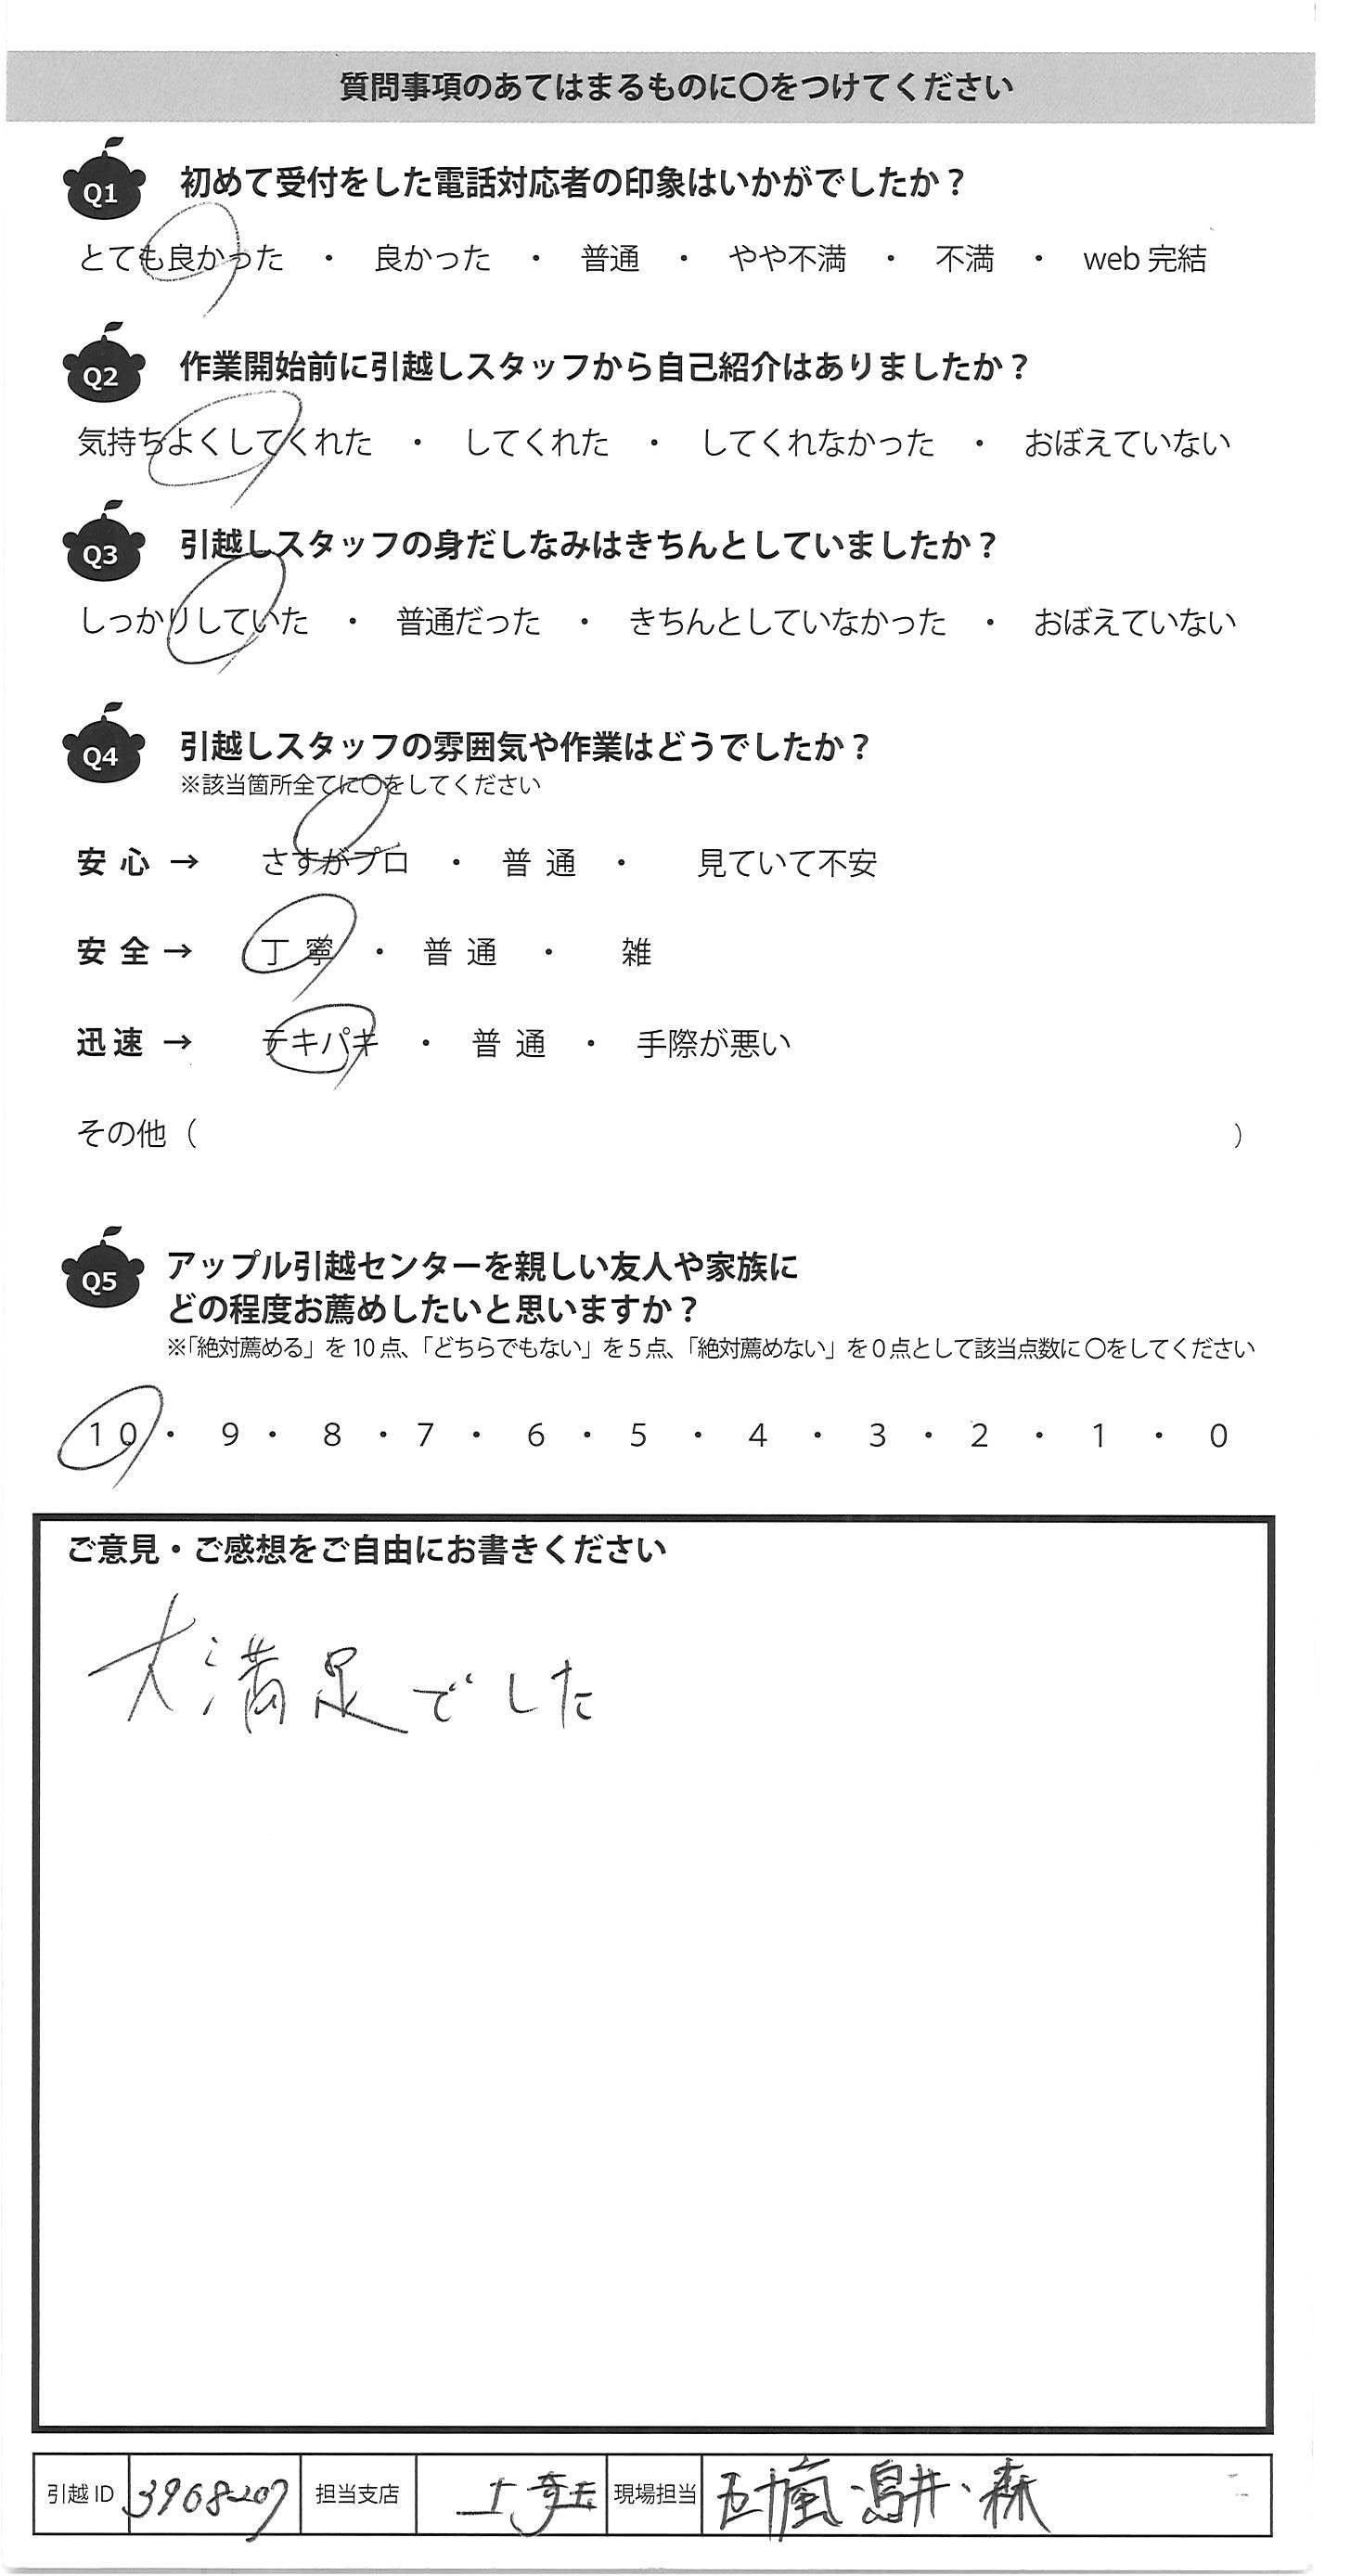 質問事項のあてはまるものに〇をつけてください
Q1 初めて受付をした電話対応者の印象はいかがでしたか？
とても良かった ・ 良かった ・ 普通 ・ やや不満 ・ 不満 ・ web 完結
Q2 作業開始前に引越しスタッフから自己紹介はありましたか？
気持ちよくしてくれた ・ してくれた ・ してくれなかった ・ おぼえていない
Q3 引越しスタッフの身だしなみはきちんとしていましたか？
しっかりしていた ・ 普通だった ・ きちんとしていなかった ・ おぼえていない
Q4 引越しスタッフの雰囲気や作業はどうでしたか？
※該当箇所全てに〇をしてください
安心 → さすがプロ ・ 普通 ・ 見ていて不安
安全 → 丁寧 ・ 普通 ・ 雑
迅速 → テキパキ ・ 普通 ・ 手際が悪い
その他（ ）
Q5 アップル引越センターを親しい友人や家族に
どの程度お薦めしたいと思いますか？
※「絶対薦める」を 10 点、「どちらでもない」を 5 点、「絶対薦めない」を 0 点として該当点数に 〇をしてください
10 ・ 9 ・ 8 ・ 7 ・ 6 ・ 5 ・ 4 ・ 3 ・ 2 ・ 1 ・ 0
ご意見・ご感想をご自由にお書きください
大満足でした
引越 ID 3968207 担当支店 埼玉 現場担当 五十嵐・鳥井・森